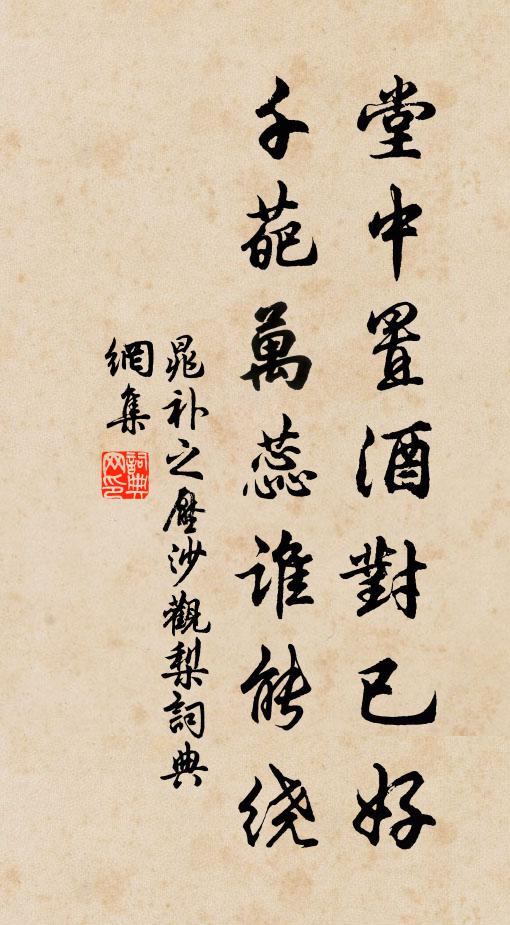 堂中置酒對已好
千葩萬蕊谁能绕
晁补之壓沙觀梨詞典
網集
詞典
网印